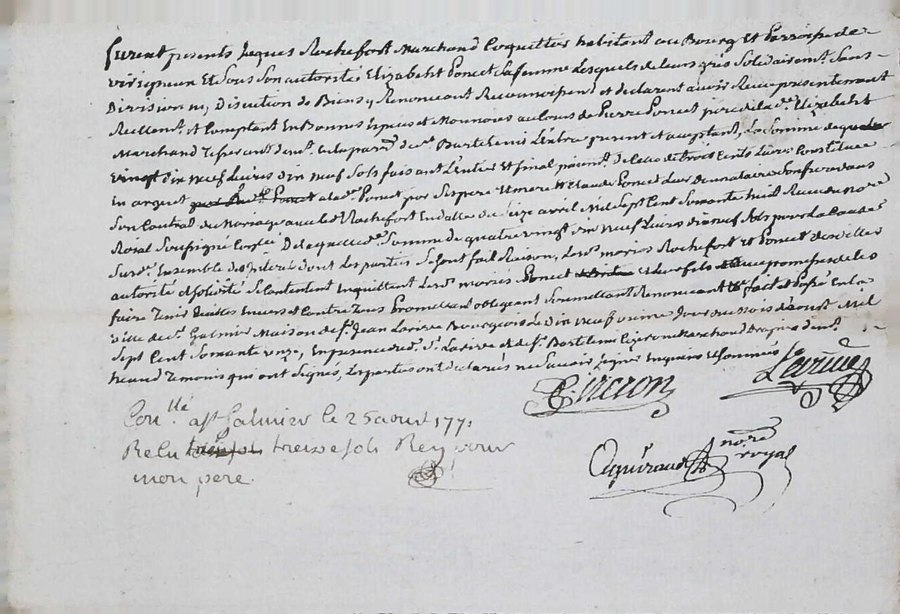 furent presents Jaques Rochefort Marchand Coquettier habitant au Bourg Et Parroisse de
virigneux Et sous son autorité Elizabeht Poncet sa femme Lesquels de leurs grés solidairemt. sans
Division ny Discution de Biens y Renonceant Reconnoissent et declarent avoir Receu presentement
Reellemt. et Comptant En Bonnes Espèces et Monnoyes au Cours de Pierre Poncet pere de lad. Elizabeht
Marchand demt. en la parr. de st. Barthelemis Lestra present et aceptant, La Somme de quatre
vingt dix neuf Livres dix neuf Sols faisant L'entier Et final paiemt. de la de trois Cents Livres Constituée
En argent a lad. Poncet par Sesdits pere Et mere Et Claude Poncet Leur donnataire Conf. dans
Son Contrat de Mariage avec led. Rochefort En datte du Seize avril Mil Sept Cent Soixante huit Receu du no.re
Roial Soussigné De laquelle d. Somme de quatre vingt dix neuf Livres dix neuf Sols pour La Cause
Susd. Ensemble des Interets dont Les parties Se font fait Raison, Les d. mariés Rochefort et Poncet de
autorité Se Contentent En quittent Led. et
faire Tenir quittes Envers et Contre Tous Promettant obligeant Soumettant Renonceant fait et passé En la
ville de st. Galmier Maison de sr. Jean Larive Bourgeois Le Dix neuf vieme Jour du Mois d'aoust Mil
Sept Cent Soixante onze, En presence dud. Sr. Larive et de sr. Barthlemi Ciceron Marchand Drapier demt.
aud. Temoins qui ont Signés, Les parties ont declarés ne Scavoir Signer Enquis Et Sommés
B. Ciceron
Larive
Conllé a st Galmier le 25 aout 1771
Reçu treize sols Rey pour
mon pere.
nore
royal